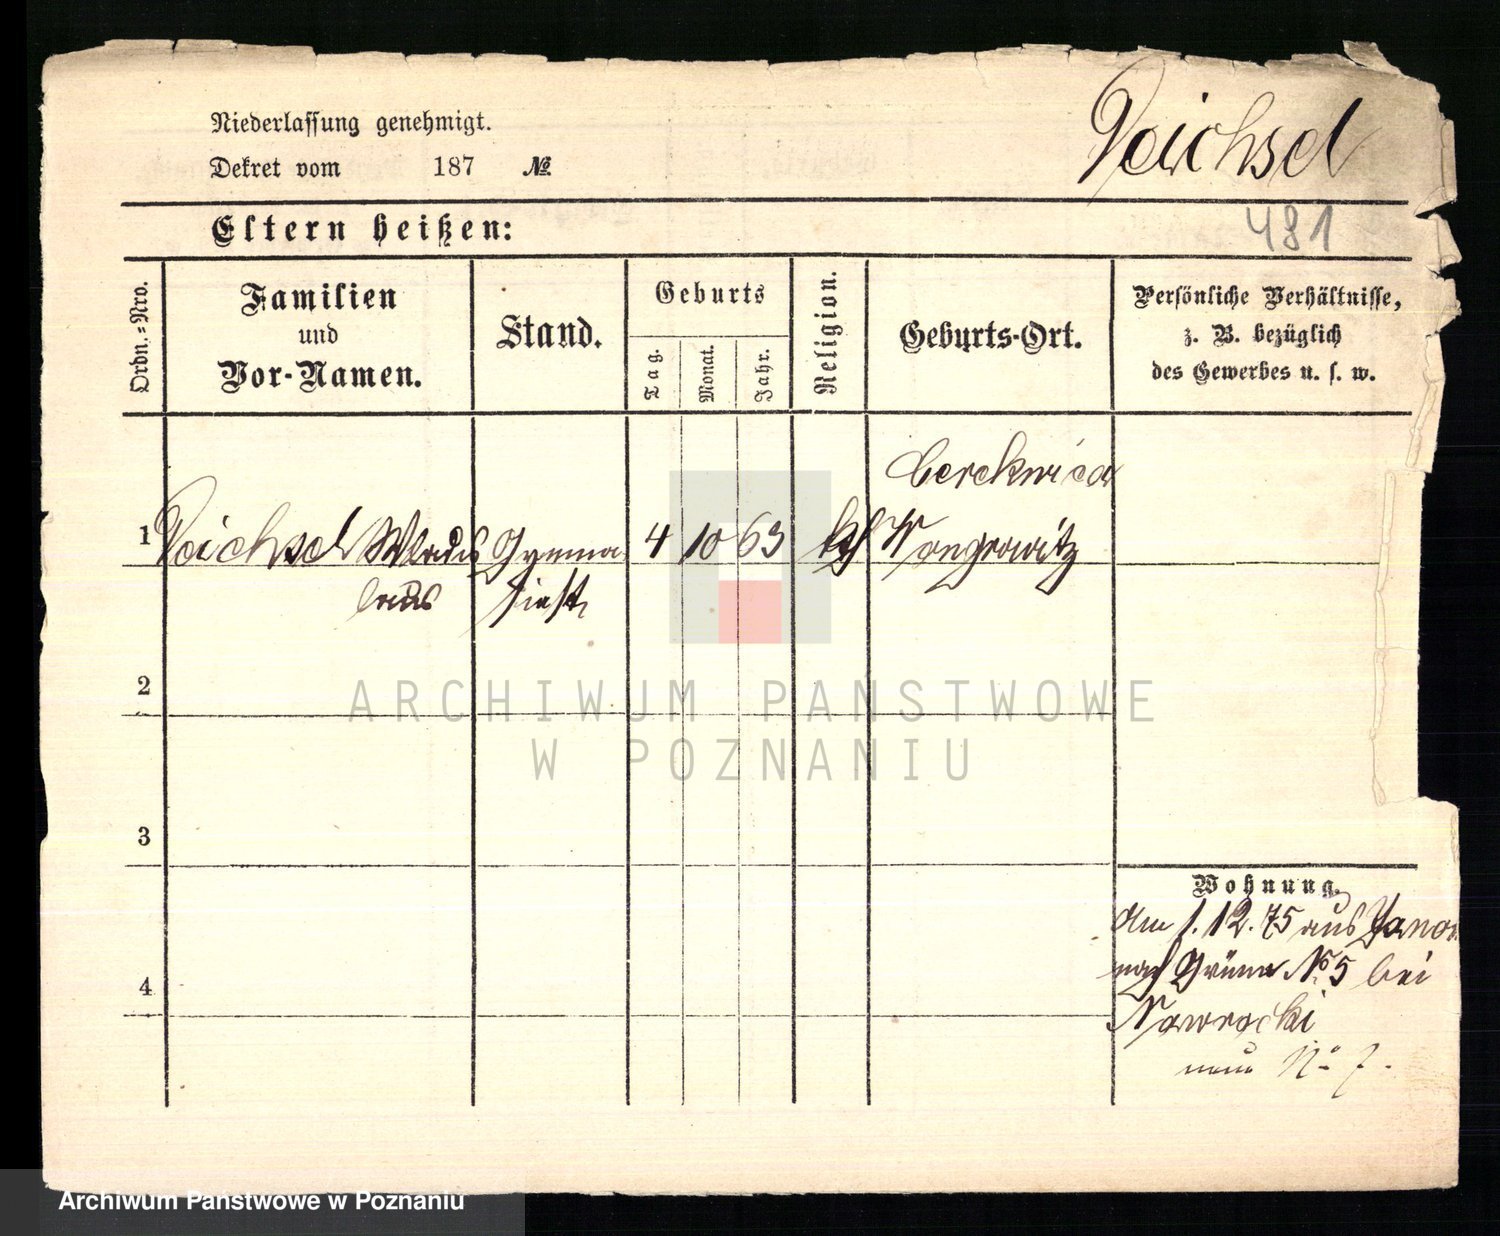 Niederlassung genehmigt.
Dekret vom 187 №
481
Eltern heißen:
Ordn.=Nro.
Familien
und
Vor-Namen.
Stand.
Geburts
Tag.
Monat.
Jahr.
Religion.
Geburts-Ort.
Persönliche Verhältnisse,
z. B. bezüglich
des Gewerbes u. s. w.
1 Wladis Gymna 4 10 63 kth Wongrowitz
laus siast
2
3
4
Wohnung.
Am 1.12.75 aus
nach Grüne No 5 bei
Nawrocki
neue No 7.
ARCHIWUM PANSTWOWE
W POZNANIU
Archiwum Państwowe w Poznaniu